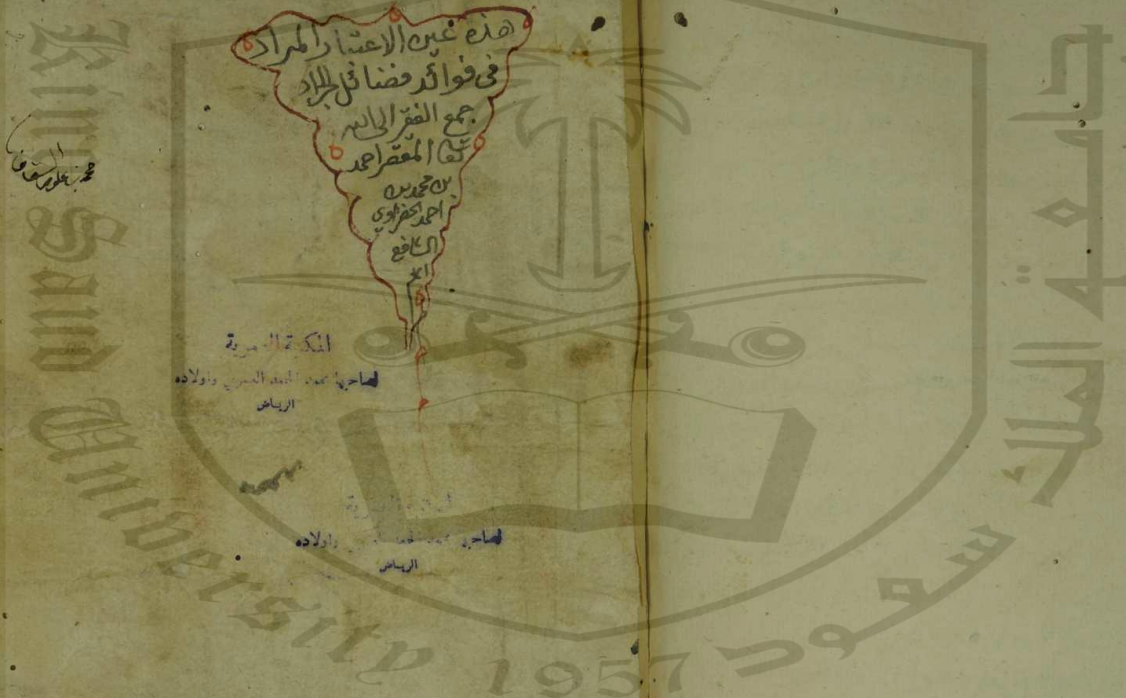 هذه عين الاعتبار المراد
في فوائد فضائل الجراد
جمع الفقير الى الله
المقصر احمد
بن محمد بن
احمد الحضراوي
الشافعي
المكتبة
لصاحبها محمد الحمد وأولاده
الرياض
لصاحبها محمد وأولاده
الرياض
King Saud University
1957
جامعة الملك سعود